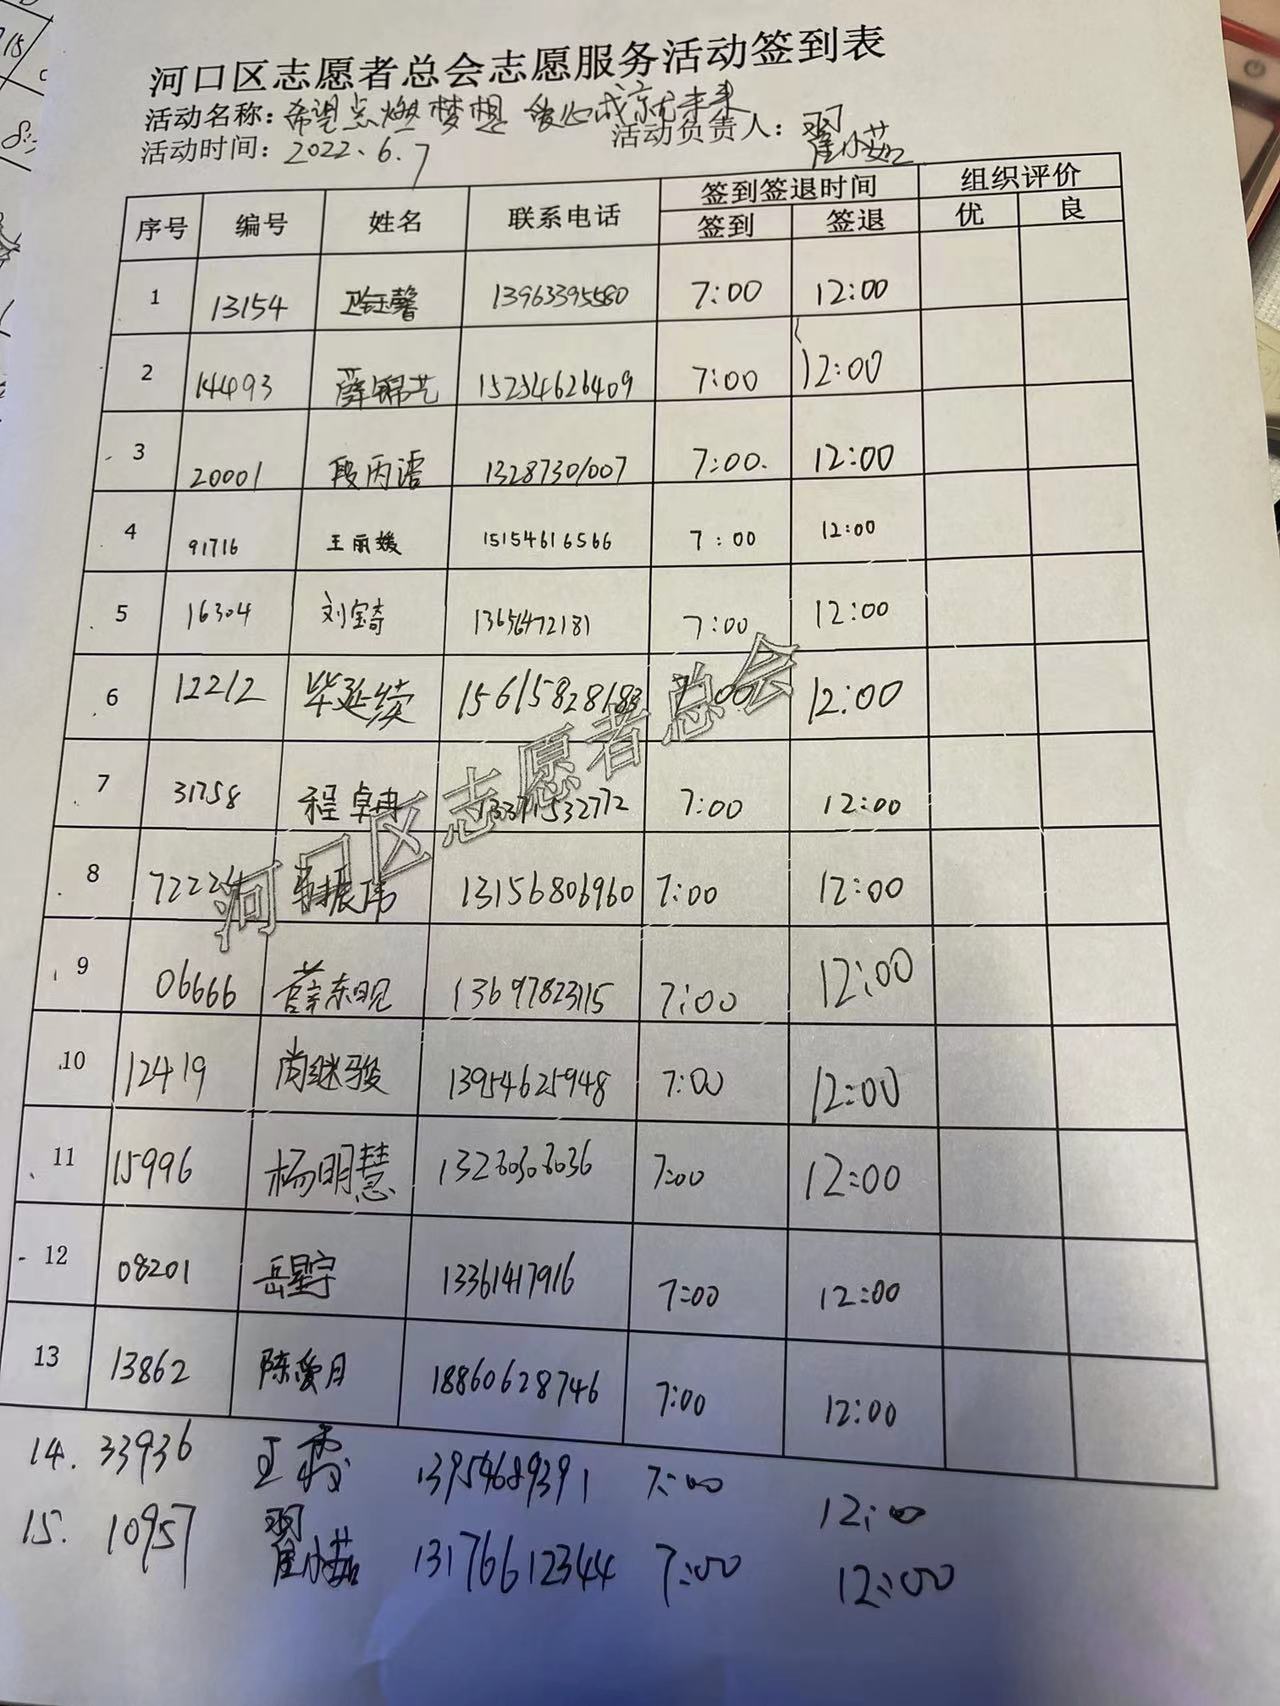 河口区志愿者总会志愿服务活动签到表
活动名称：希望点燃梦想 爱心成就未来
活动时间：2022.6.7 活动负责人：翟小茹
序号 编号 姓名 联系电话 签到签退时间 组织评价
签到 签退 优 良
1 13154 卫钰馨 13963395580 7:00 12:00
2 14493 薛锦艺 15254626409 7:00 12:00
3 20001 段丙语 13287301007 7:00 12:00
4 91716 王丽媛 15154616566 7:00 12:00
5 16304 刘宝奇 13656472181 7:00 12:00
6 12212 毕延续 15615828183 7:00 12:00
7 31758 程卓冉 13371532772 7:00 12:00
8 振伟 13156806960 7:00 12:00
9 06666 薛东昭 13697823115 7:00 12:00
10 12419 尚继骏 13954625948 7:00 12:00
11 15996 杨明慧 7:00 12:00
12 08201 岳星宇 13361417916 7:00 12:00
13 13862 陈爱月 18860628746 7:00 12:00
14. 33936 王霞 13954689391 7:00 12:00
15. 10957 翟小茹 13176612344 7:00 12:00
河口区志愿者总会